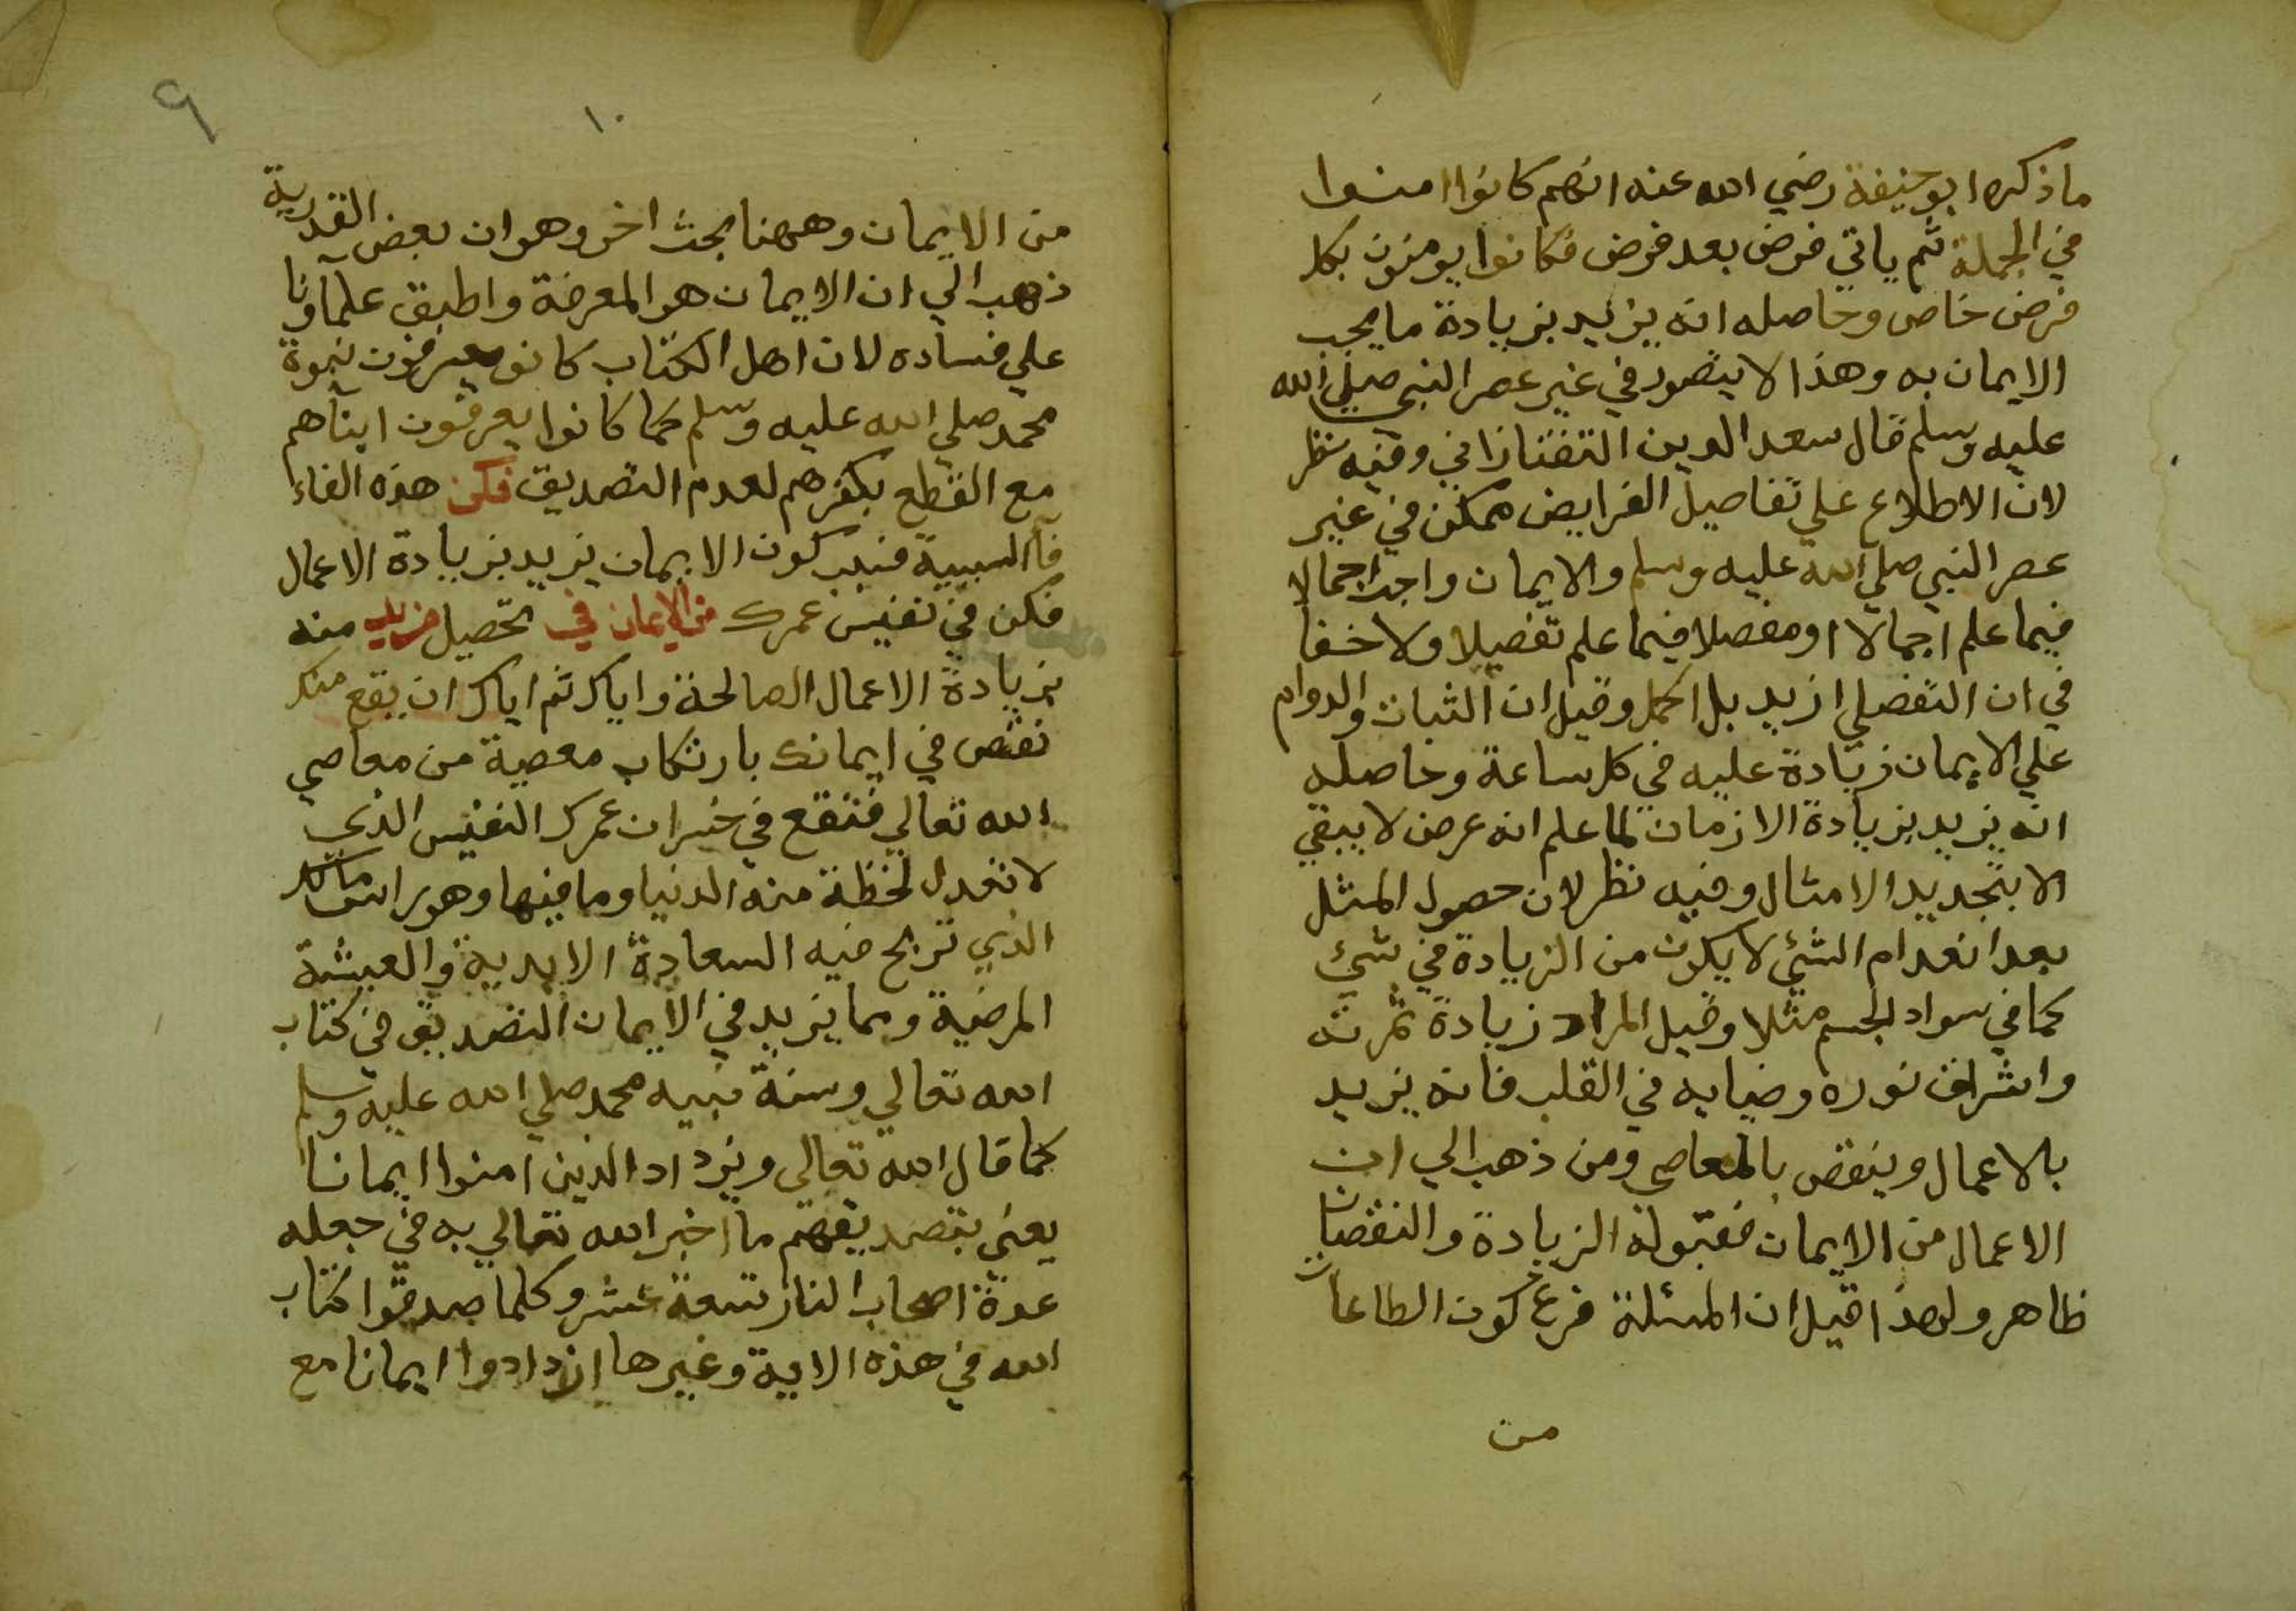 ما ذكره ابو حنيفة رضي الله عنه انهم كانوا امنوا
في الجملة ثم ياتي فرض بعد فرض فكانوا يومنون بكل
فرض خاص وحاصله انه يزيد بزيادة ما يجب
الايمان به وهذا لا يتصور في غير عصر النبي صلي الله
عليه وسلم قال سعد الدين التفتازاني وفيه نظر
لان الاطلاع علي تفاصيل الفرايض ممكن في غير
عصر النبي صلي الله عليه وسلم والايمان واجب اجمالا
فيما علم اجمالا ومفصلا فيما علم تفصيلا ولا خفا
في ان التفصلي ازيد بل اكمل وقيل ان الثبات والدوام
علي الايمان زيادة عليه في كل ساعة وحاصله
انه يزيد بزيادة الازمان لما علم انه عرض لا يبقي
الا بتجديد الامثال وفيه نظر لان حصول المثل
بعد انعدام الشئ لا يكون من الزيادة في شئ
كما في سواد الجسم مثلا وقيل المراد زيادة ثمرته
واشراق نوره وضيايه في القلب فانه يزيد
بالاعمال وينقص بالمعاصي ومن ذهب الي ان
الاعمال من الايمان فقبوله الزيادة والنقصان
ظاهر ولهذا قيل ان المسئلة فرع كون الطاعات
من
٩
١٠
من الايمان وههنا بحث اخر وهو ان بعض القدرية
ذهب الي ان الايمان هو المعرفة واطبق علماونا
علي فساده لان اهل الكتاب كانو يعرفون نبوة
محمد صلي الله عليه وسلم كما كانوا يعرفون ابناهم
مع القطع بكفرهم لعدم التصديق فكن هذه الفاء
فآ السببية فسبب كون الايمان يزيد بزيادة الاعمال
فكن في نفيس عمرك من الايمان في تحصيل مزيد منه
بزيادة الاعمال الصالحة واياك ثم اياك ان يقع منك
نقص في ايمانك بارتكاب معصية من معاصي
الله تعالي فتقع في خسران عمرك النفيس الذي
لا تعدل لحظة منه الدنيا وما فيها وهو راس مالك
الذي تربح فيه السعادة الابدية والعيشة
المرضية ومما يزيد في الايمان التصديق في كتاب
الله تعالي وسنة نبيه محمد صلي الله عليه وسلم
كما قال الله تعالي ويزداد الذين امنوا ايمانا
يعني بتصديقهم ما اخبر الله تعالي به في جعله
عدة اصحاب النار تسعة عشر وكلما صدقوا كتاب
الله في هذه الاية وغيرها ازدادوا ايمانا مع